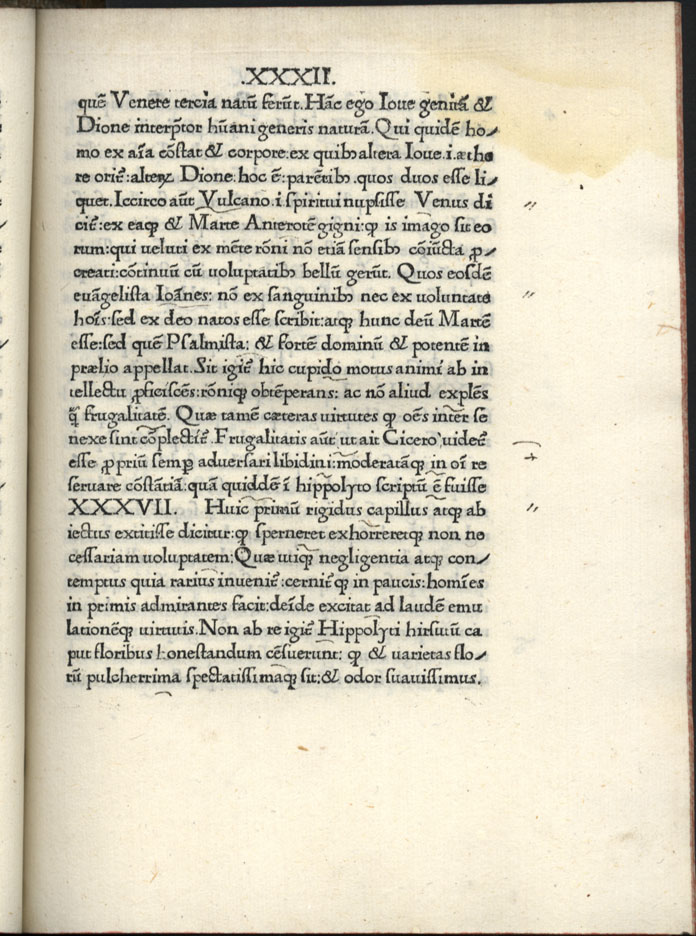 .XXXII.
quē Venere tercia natū ferūt. Hāc ego Ioue genitā &
Dione interp̄tor hūani generis naturā. Qui quidē ho⸗
mo ex aīa cōstat & corpore: ex quibꝫ altera Ioue .i. æthe
re oriē: alteꝝ Dione: hoc ē: parētibꝫ .quos duos esse li⸗
quet. Iccirco aūt Vulcano .i spiritui nupsisse Venus di
ciē: ex eaqꝫ & Marte Anterotē gigni: ꝙ is imago sit eo
rum: qui ueluti ex mēte rōni nō etiā sensibꝫ cōiūcta ꝓ⸗
creati: cōtinuū cū uoluptatibꝫ bellū gerūt. Quos eosdē
euāgelista Ioānes: nō ex sanguinibꝫ nec ex uoluntate
hoīs: sed ex deo natos esse scribit: atqꝫ hunc deū Martē
esse: sed quē Psalmista: & fortē dominū & potentē in
prælio appellat. Sit igiē hic cupido motus animi ab in
tellectu ꝓficiscēs: rōniqꝫ obtēperans: ac nō aliud explēs
q̄ frugalitatē. Quæ tamē cæteras uirtutes ꝙ oēs inter se
nexe sint cōplectiē. Frugalitatis aūt ut ait Cicero, uideē
esse ꝓpriū semꝑ aduersari libidini: moderatāqꝫ in oī re
seruare cōstātiā: quā quiddē ī hippolyto scriptū ē fuisse
XXXVII. Huic primū rigidus capillus atqꝫ ab
iectus extitisse dicitur: ꝙ sperneret exhorreretqꝫ non ne
cessariam uoluptatem: Quæ utiqꝫ negligentia atqꝫ con⸗
temptus quia rarius inueniē: cerniēqꝫ in paucis: homīes
in primis admirantes facit: deīde excitat ad laudē emu
lationēqꝫ uirtutis. Non ab re igiē Hippolyti hirsutū ca
put floribus honestandum cēsuerunt: ꝙ & uarietas flo⸗
rū pulcherrima spectatissimaqꝫ sit: & odor suauissimus.